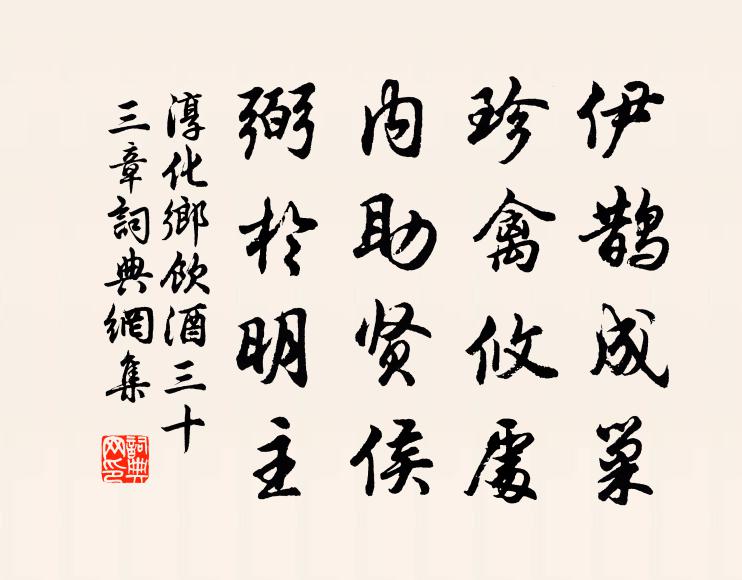 伊鹊成巢
珍禽攸處
内助贤侯
弼於明主
淳化鄉飲酒三十
三章詞典網集
詞典网印